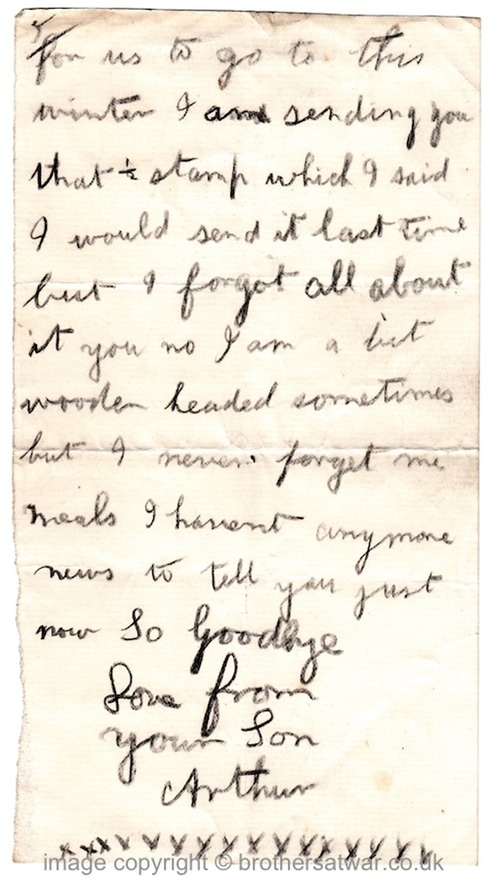 for us to go to this
winter I am sending you
that ½ stamp which I said
I would send it last time
but I forgot all about
it you no I am a bit
wooden headed sometimes
but I never forget me
meals I havent anymore
news to tell you just
now So Goodbye
Love from
your Son
Arthur
xxxxxxxxxxxxxxxx
image copyright © brothersatwar.co.uk